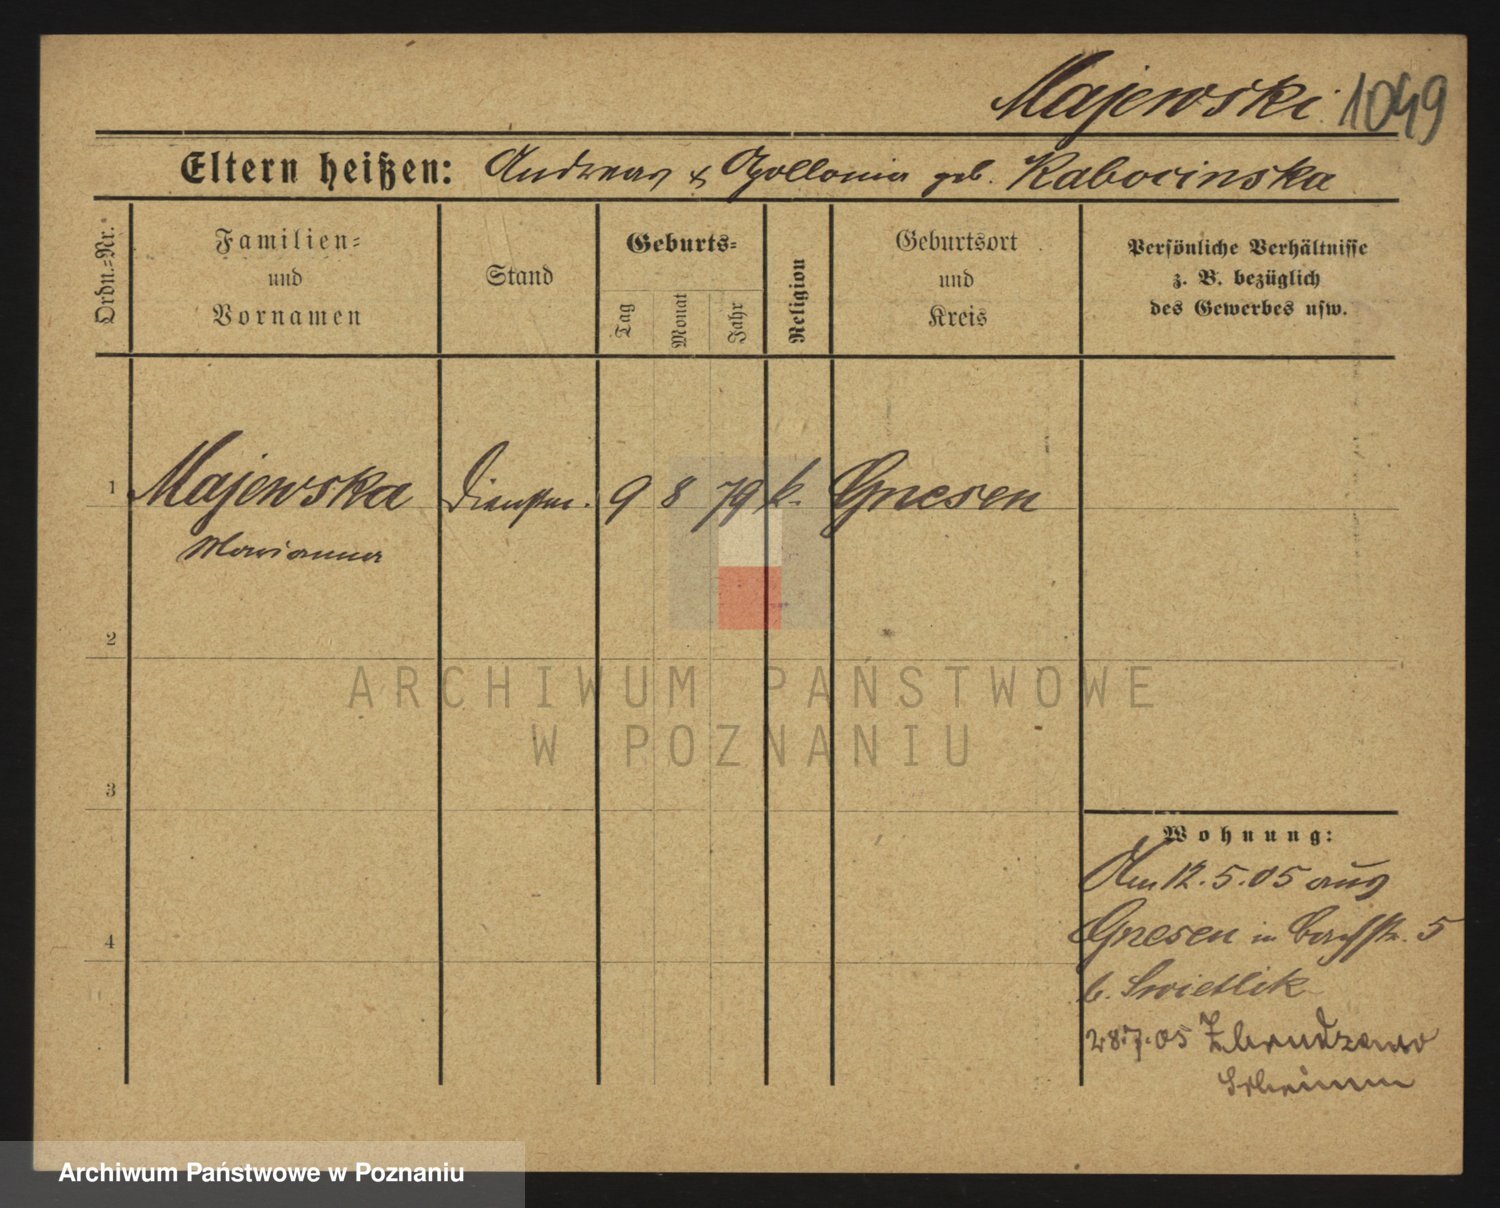 Majewski 1049
Eltern heißen: Andreas & Apollonia geb. Rabocinska
Ordn.-Nr.
Familien-
und
Vornamen
Stand
Geburts-
Tag
Monat
Jahr
Religion
Geburtsort
und
Kreis
Persönliche Verhältnisse
z. B. bezüglich
des Gewerbes usw.
1 Majewska Dienstm. 9 8 79 k. Gnesen
Marianna
2
3
4
Wohnung:
Am 12.5.05 aus
Gnesen in 5
b. Swietlik
28.7.05
Schrimm
ARCHIWUM PAŃSTWOWE
W POZNANIU
Archiwum Państwowe w Poznaniu